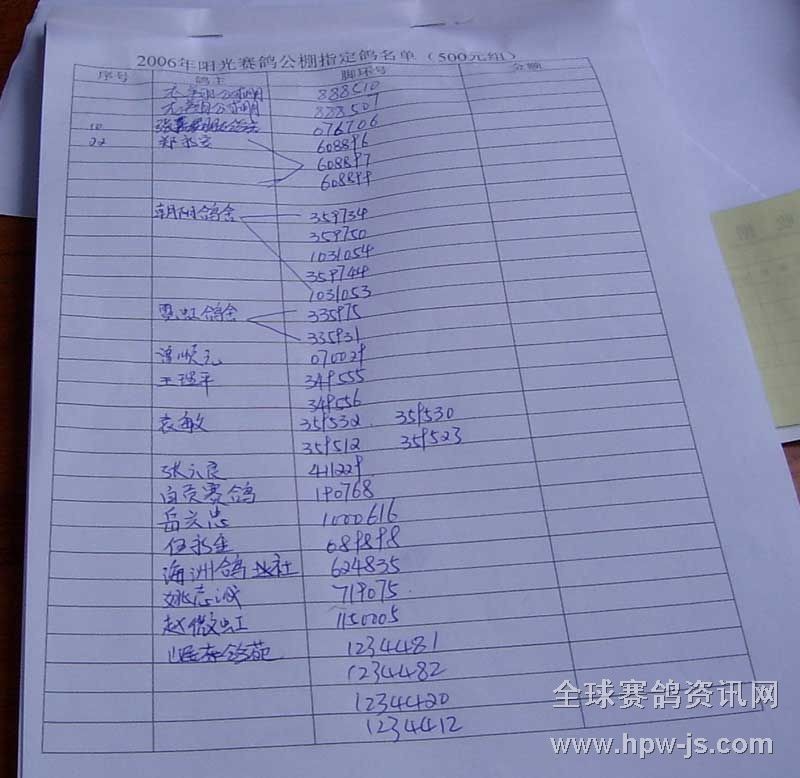 2006年阳光赛鸽公棚指定鸽名单（500元组）
序号 鸽主 脚环号 金额
888510
888507
10 076706
22 郑永宏 608896
608897
608899
朝阳鸽舍 359734
359750
1031054
359744
1031053
霓虹鸽舍 335975
335931
曾顺元 070029
王瑞平 349555
349556
袁敏 359532 359530
359512 359523
张六良 411229
自贡赛鸽 190768
岳兴忠 1000616
伍永生 689898
海洲鸽社 624835
姚志诚 719075
赵微虹 1150005
1234481
1234482
1234420
1234412
全球赛鸽资讯网
www.hpw-js.com